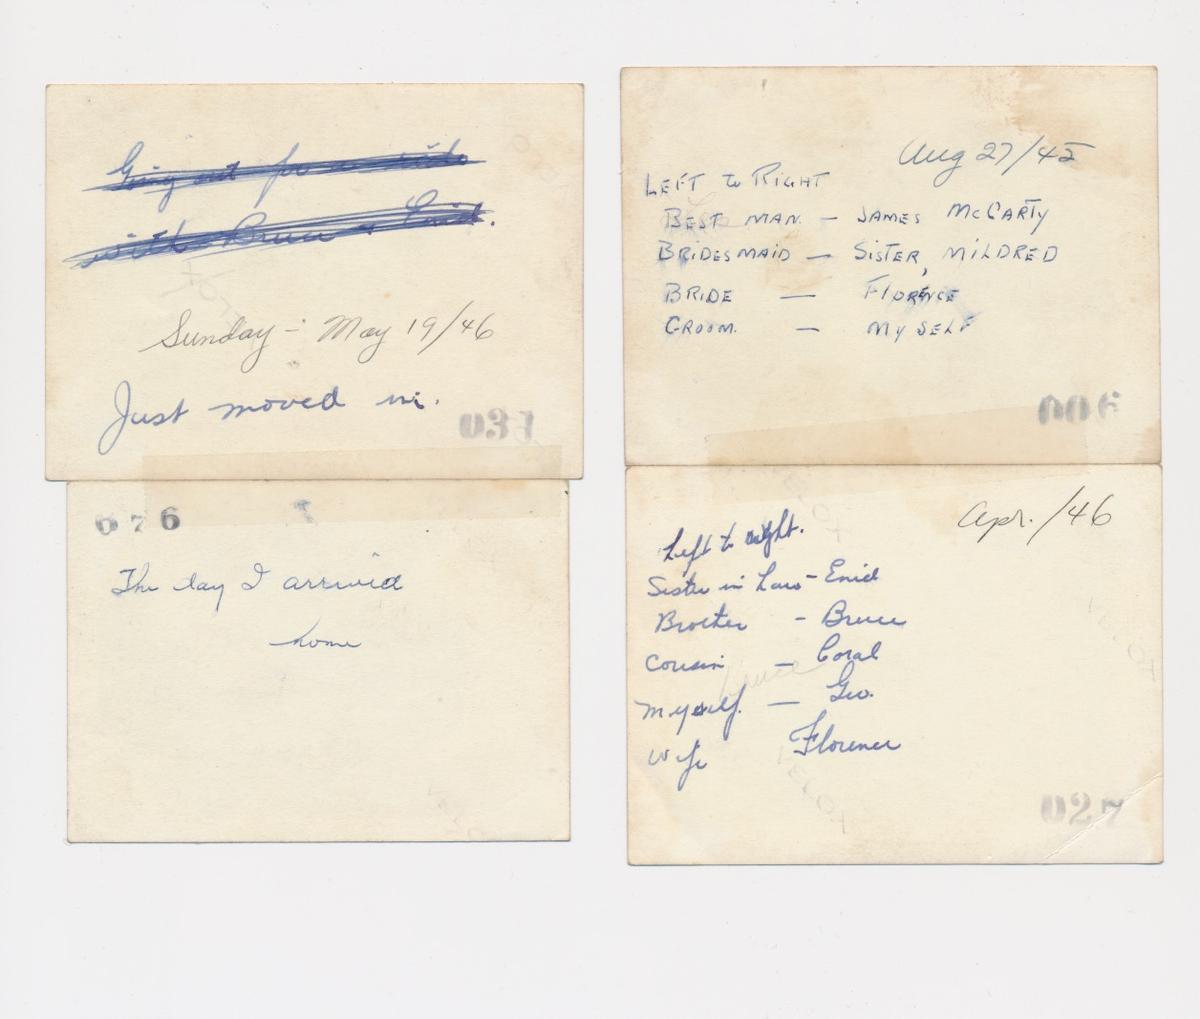 Going out for a while
with Bruce & Enid.
Sunday - May 19/46
Just moved in.
031
076
The day I arrived
home
Aug 27/45
LEFT to RIGHT
BEST MAN - JAMES McCARTY
BRIDESMAID - SISTER, MILDRED
BRIDE - FLORENCE
GROOM. - MYSELF
006
Apr. /46
Left to right.
Sister in Law - Enid
Brother - Bruce
Cousin - Coral
Myself. - Geo.
Wife Florence
027
VELOX